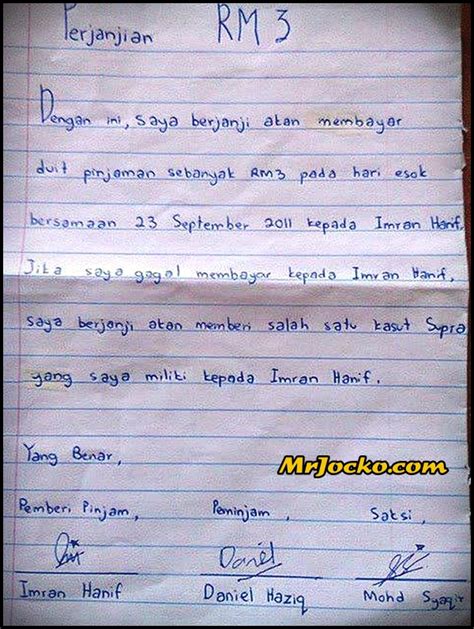 Perjanjian RM 3
Dengan ini, saya berjanji akan membayar
duit pinjaman sebanyak RM3 pada hari esok
bersamaan 23 September 2011 kepada Imran Hanif.
Jika saya gagal membayar kepada Imran Hanif,
saya berjanji akan memberi salah satu kasut Supra
yang saya miliki kepada Imran Hanif.
Yang Benar,
MrJocko.com
Pemberi Pinjam, Peminjam, Saksi,
Daniel
Imran Hanif Daniel Haziq Mohd Syaqir